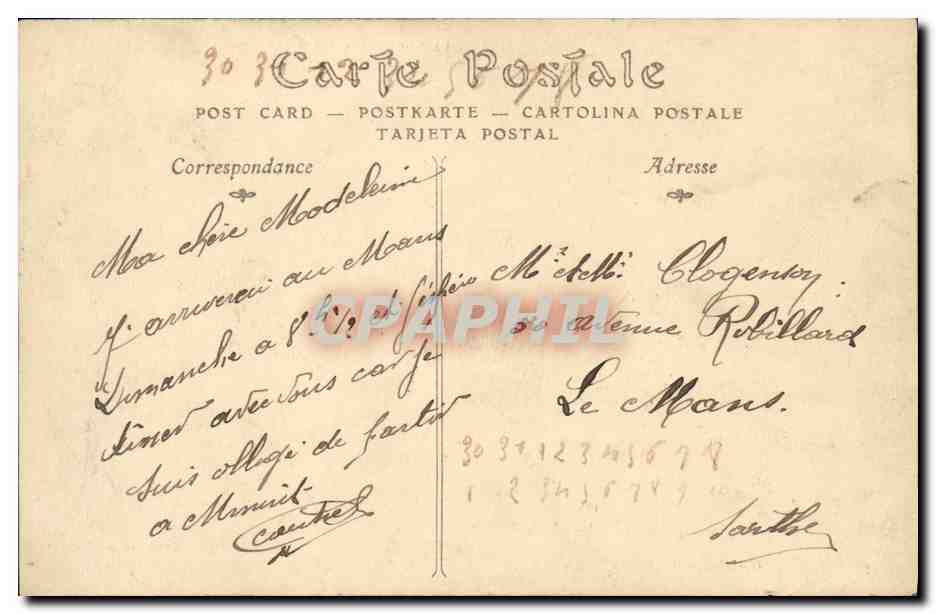 30 31
Carte Postale
POST CARD — POSTKARTE — CARTOLINA POSTALE
TARJETA POSTAL
Correspondance
Ma chère Madeleine
J'arriverai au Mans
Dimanche a 8h 1/2 et
diner avec vous car je
suis obligé de partir
a Minuit
Adresse
Mr et Mme Clogenson
30 avenue Rubillard
Le Mans.
30 31 1 2 3 4 5 6 7 8
1 2 3 4 5 6 7 8 9
Sarthe
CPAPHIL